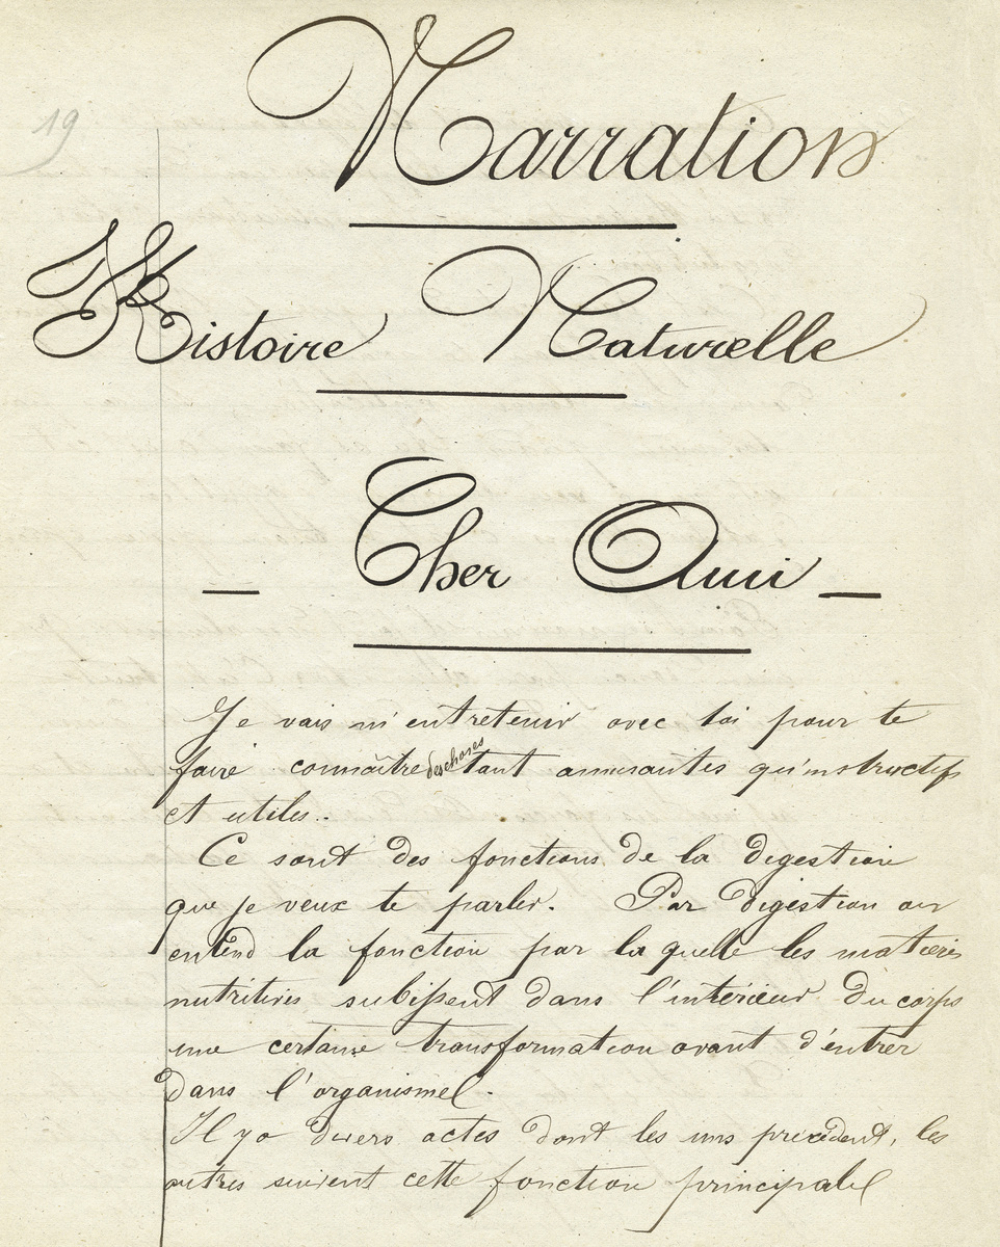 19
Narration
Histoire Naturelle
— Cher Ami —
Je vais m'entretenir avec toi pour te
faire connaître des choses tant amusantes qu'instructifs
et utiles..
Ce sont des fonctions de la digestion
que je veux te parler. Par digestion on
entend la fonction par la quelle les matières
nutritives subissent dans l'intérieur du corps
une certaine transformation avant d'entrer
dans l'organisme.
Il y a divers actes dont les uns précèdent, les
autres suivent cette fonction principale